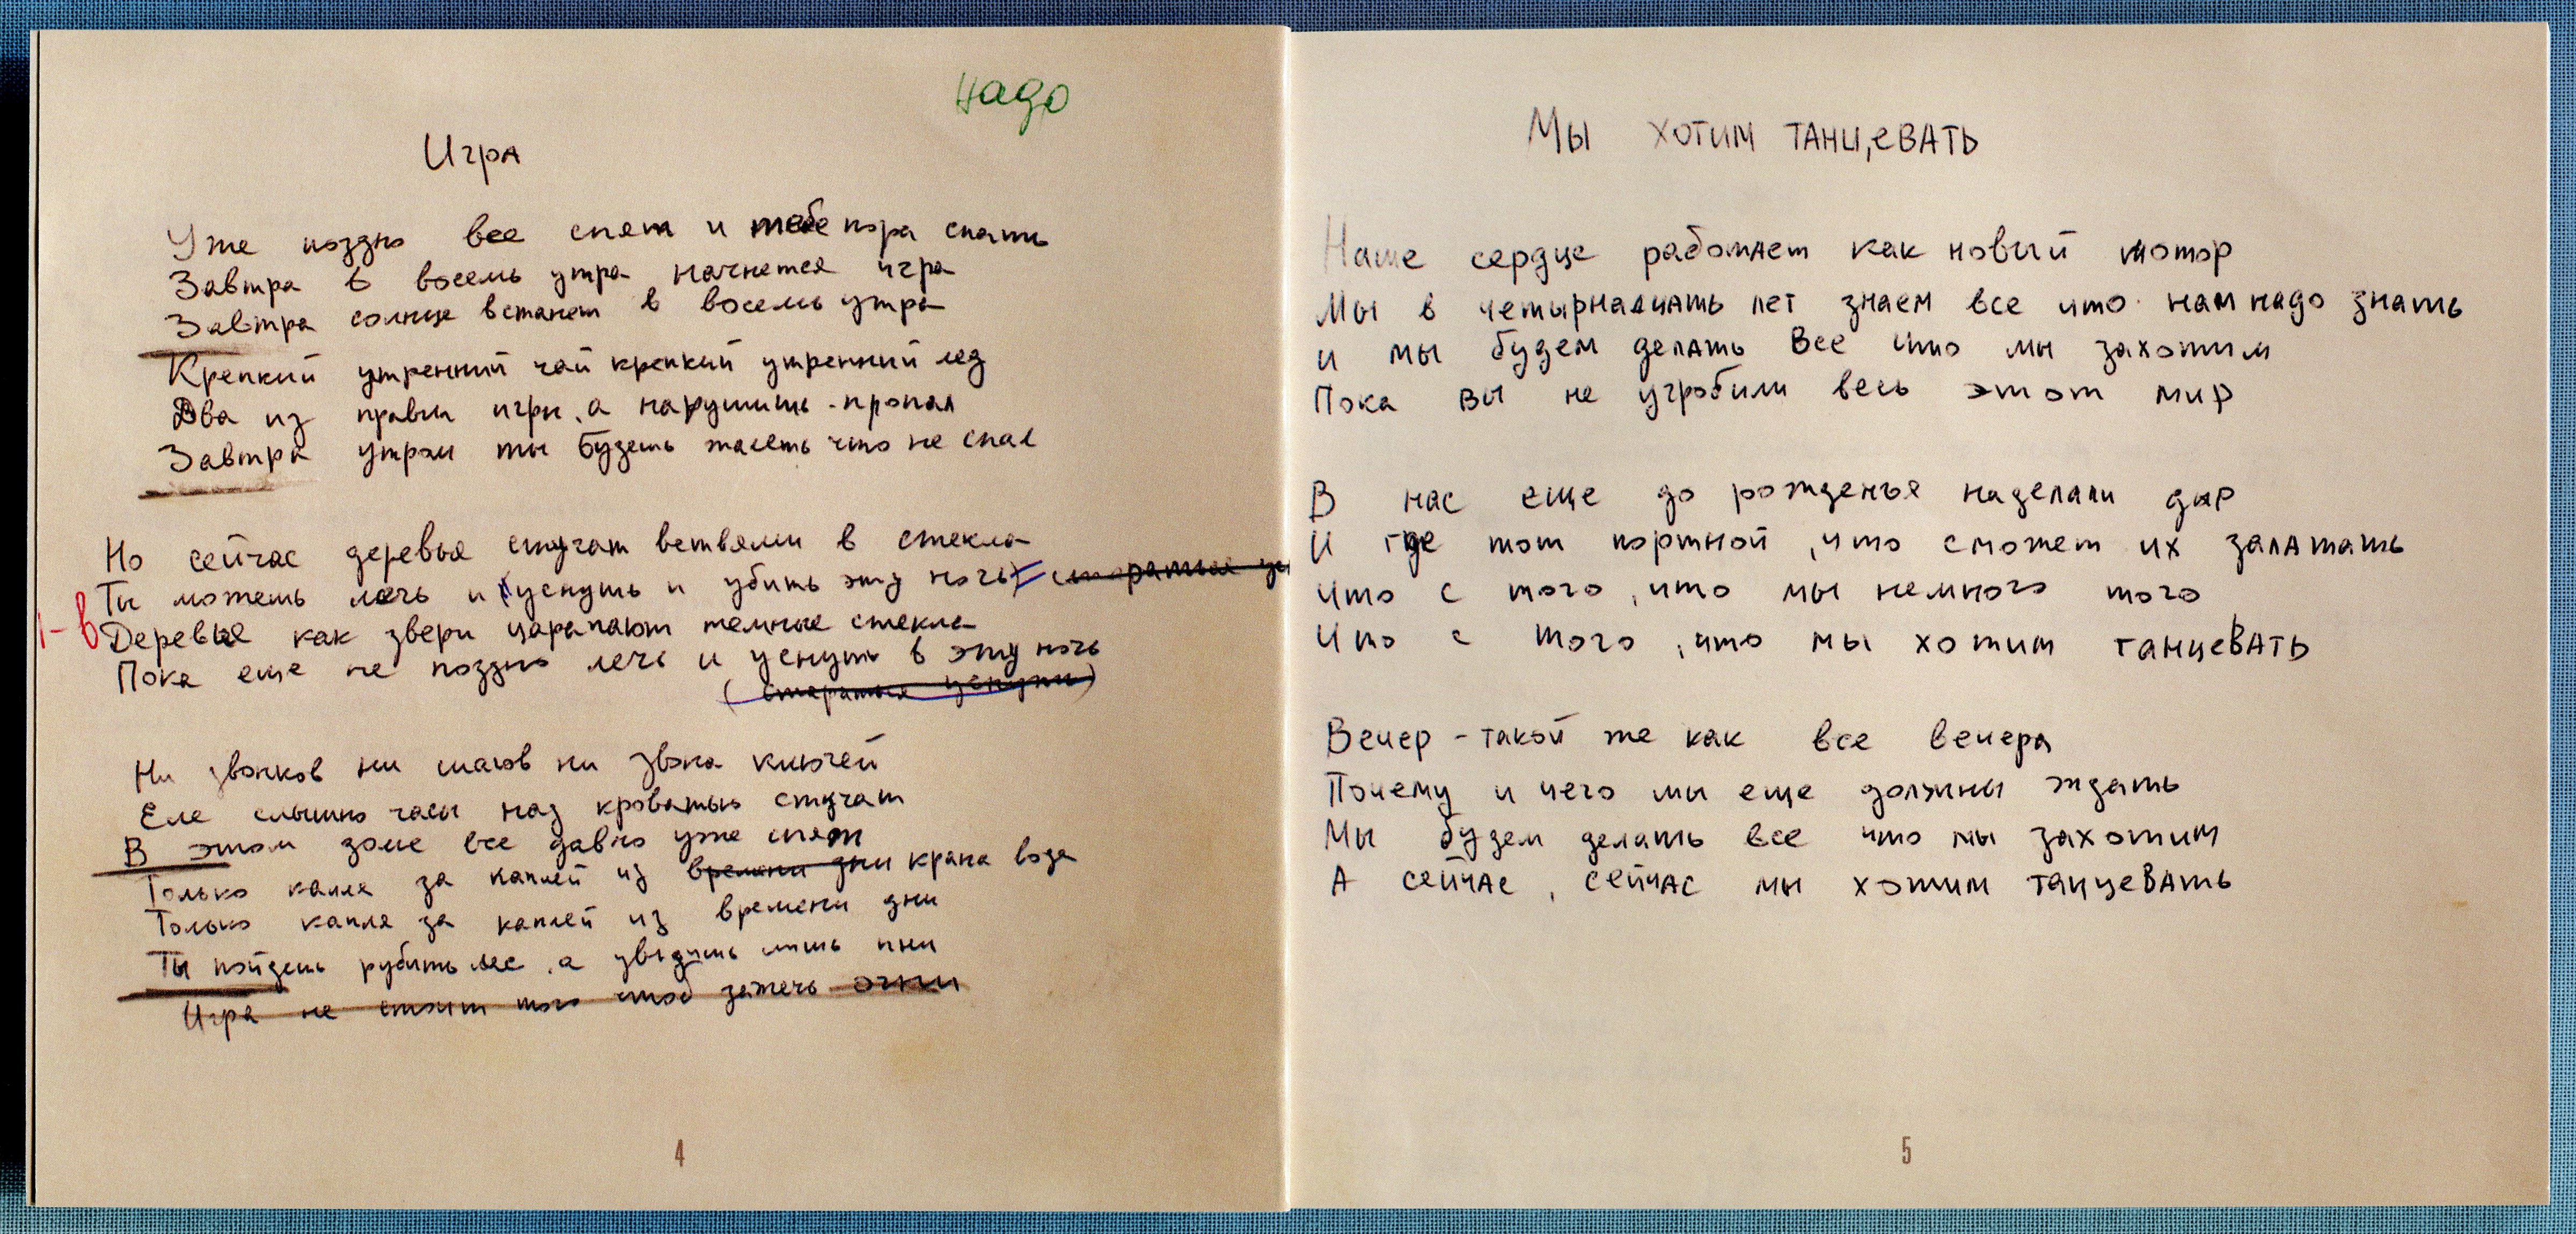 надо
Игра
Уже поздно все спят и тебе пора спать
Завтра в восемь утра начнется игра
Завтра солнце встанет в восемь утра
Крепкий утренний чай крепкий утренний лед
Два из правил игры, а нарушишь - пропал
Завтра утром ты будешь жалеть что не спал
Но сейчас деревья стучат ветвями в стекла
Ты можешь лечь и (уснуть и убить эту ночь) стараться
1-в
Деревья как звери царапают темные стекла
Пока еще не поздно лечь и уснуть в эту ночь
(стараться уснуть)
Ни звонков ни шагов ни звона ключей
Еле слышно часы над кроватью стучат
В этом доме все давно уже спят
Только капля за каплей из времени дни крана вода
Только капля за каплей из времени дни
Ты пойдешь рубить лес, а увидишь лишь пни
Игра не стоит того чтоб зажечь огни
4
Мы хотим танцевать
Наше сердце работает как новый мотор
Мы в четырнадцать лет знаем все что нам надо знать
и мы будем делать все что мы захотим
Пока вы не угробили весь этот мир
В нас еще до рожденья наделали дыр
И где тот портной, что сможет их залатать
Что с того, что мы немного того
Что с того, что мы хотим танцевать
Вечер - такой же как все вечера
Почему и чего мы еще должны ждать
Мы будем делать все что мы захотим
А сейчас, сейчас мы хотим танцевать
5